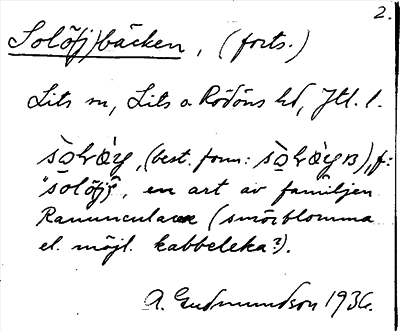 2.
Solöf(j)bäcken, (forts.)
Lits sn, Lits o. Rödöns hd, Jtl. l.
(best. form: f:
"solöfj", en art av familjen
Ranunculaceæ (smörblomma
el. möjl. kabbeleka?).
A. Gudmundson 1936.